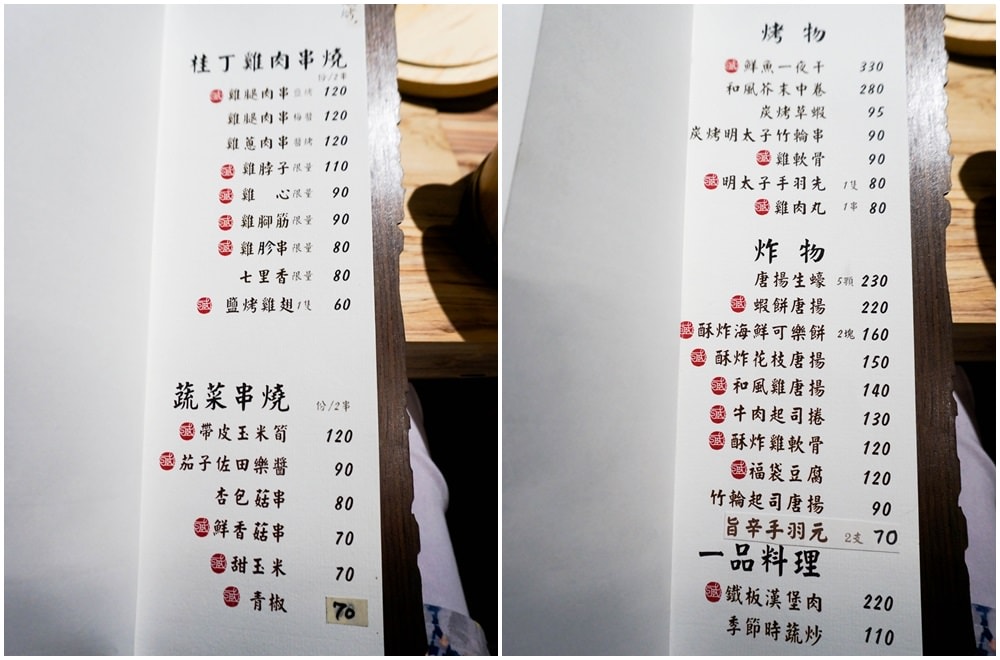 桂丁雞肉串燒
份/2串
雞腿肉串 鹽烤 120
雞腿肉串 梅醬 120
雞蔥肉串 醬烤 120
雞脖子 限量 110
雞 心 限量 90
雞腳筋 限量 90
雞胗串 限量 80
七里香 限量 80
鹽烤雞翅 1隻 60
蔬菜串燒 份/2串
帶皮玉米筍 120
茄子佐田樂醬 90
杏包菇串 80
鮮香菇串 70
甜玉米 70
青椒 70
烤物
鮮魚一夜干 330
和風芥末中卷 280
炭烤草蝦 95
炭烤明太子竹輪串 90
雞軟骨 90
明太子手羽先 1隻 80
雞肉丸 1串 80
炸物
唐揚生蠔 5顆 230
蝦餅唐揚 220
酥炸海鮮可樂餅 2塊 160
酥炸花枝唐揚 150
和風雞唐揚 140
牛肉起司捲 130
酥炸雞軟骨 120
福袋豆腐 120
竹輪起司唐揚 90
旨辛手羽元 2支 70
一品料理
鐵板漢堡肉 220
季節時蔬炒 110